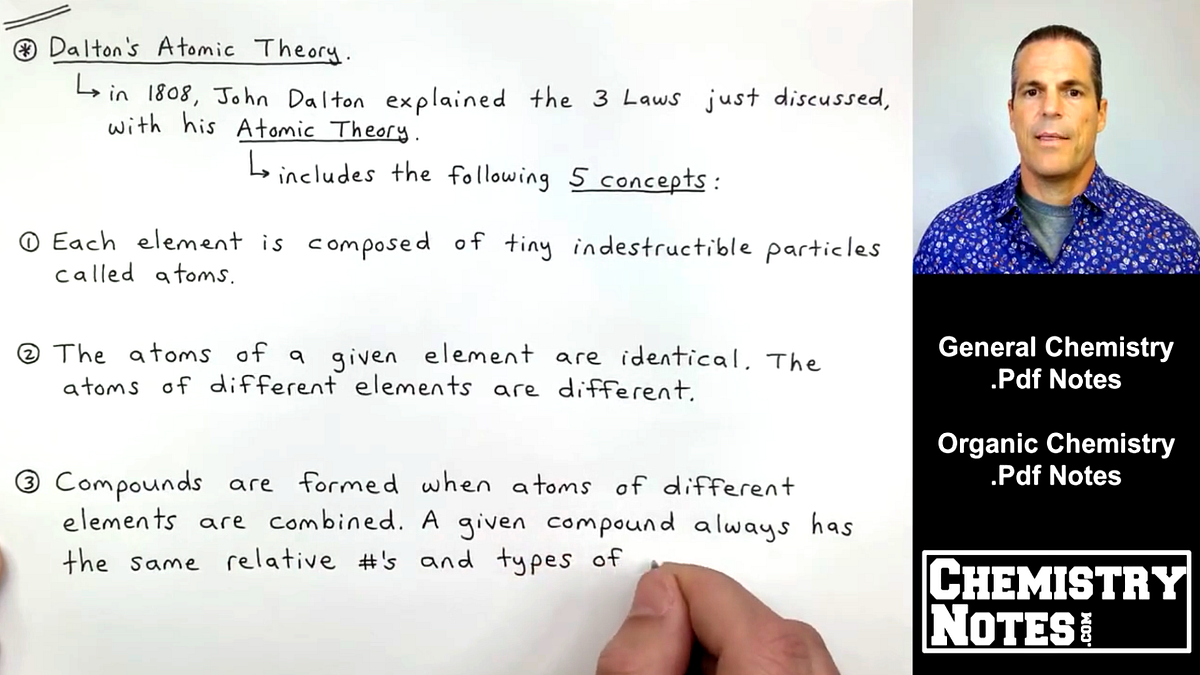 ⊛ Dalton's Atomic Theory.
↳ in 1808, John Dalton explained the 3 Laws just discussed,
with his Atomic Theory.
↳ includes the following 5 concepts:
① Each element is composed of tiny indestructible particles
called atoms.
② The atoms of a given element are identical. The
atoms of different elements are different.
③ Compounds are formed when atoms of different
elements are combined. A given compound always has
the same relative #'s and types of
General Chemistry
.Pdf Notes
Organic Chemistry
.Pdf Notes
CHEMISTRY
NOTES.COM